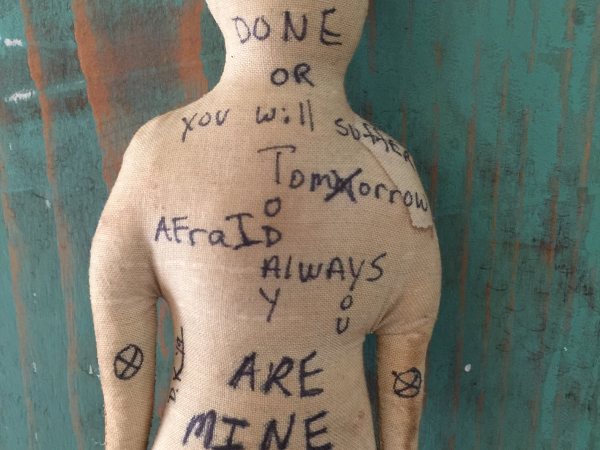 DONE
OR
YOU Will SUFFER
Tomorrow
TODAY
AFraID
AlWAYS
YOU
ARE
MINE